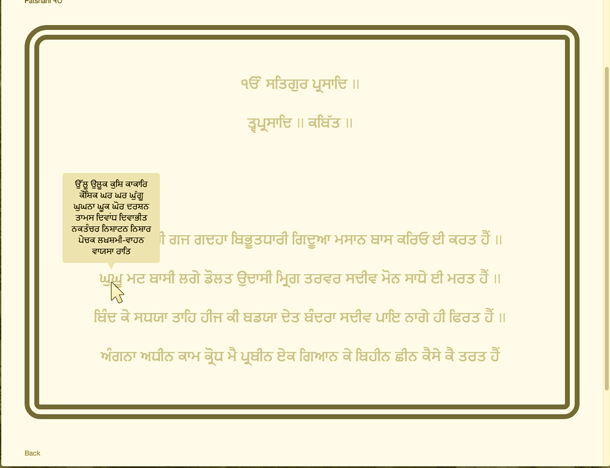 Patshahi ੧੦
ੴ ਸਤਿਗੁਰ ਪ੍ਰਸਾਦਿ ॥
ਤ੍ਵਪ੍ਰਸਾਦਿ ॥ ਕਬਿੱਤ ॥
ਉੱਲੂ ਉਲੂਕ ਕੁਸ਼ਿ ਕਾਕਾਰਿ
ਕੌਸ਼ਿਕ ਘਰ ਘਰ ਘੁੱਗੂ
ਘੁਘਨਾ ਘੂਕ ਘੋਰ ਦਰਸ਼ਨ
ਤਾਮਸ ਦਿਵਾਂਧ ਦਿਵਾਭੀਤ
ਨਕਤੰਚਰ ਨਿਸ਼ਾਟਨ ਨਿਸ਼ਾਰ
ਪੇਚਕ ਲਖਸ਼ਮੀ-ਵਾਹਨ
ਵਾਯਸਾ ਰਾਤਿ
ਗਜ ਗਦਹਾ ਬਿਭੂਤਧਾਰੀ ਗਿਦੂਆ ਮਸਾਨ ਬਾਸ ਕਰਿਓ ਈ ਕਰਤ ਹੈਂ ॥
ਘੁਘੂ ਮਟ ਬਾਸੀ ਲਗੇ ਡੋਲਤ ਉਦਾਸੀ ਮ੍ਰਿਗ ਤਰਵਰ ਸਦੀਵ ਮੋਨ ਸਾਧੇ ਈ ਮਰਤ ਹੈਂ ॥
ਬਿੰਦ ਕੇ ਸਧਯਾ ਤਾਹਿ ਹੀਜ ਕੀ ਬਡਯਾ ਦੇਤ ਬੰਦਰਾ ਸਦੀਵ ਪਾਇ ਨਾਗੇ ਹੀ ਫਿਰਤ ਹੈਂ ॥
ਅੰਗਨਾ ਅਧੀਨ ਕਾਮ ਕ੍ਰੋਧ ਮੈ ਪ੍ਰਬੀਨ ਏਕ ਗਿਆਨ ਕੇ ਬਿਹੀਨ ਛੀਨ ਕੈਸੇ ਕੈ ਤਰਤ ਹੈਂ
Back